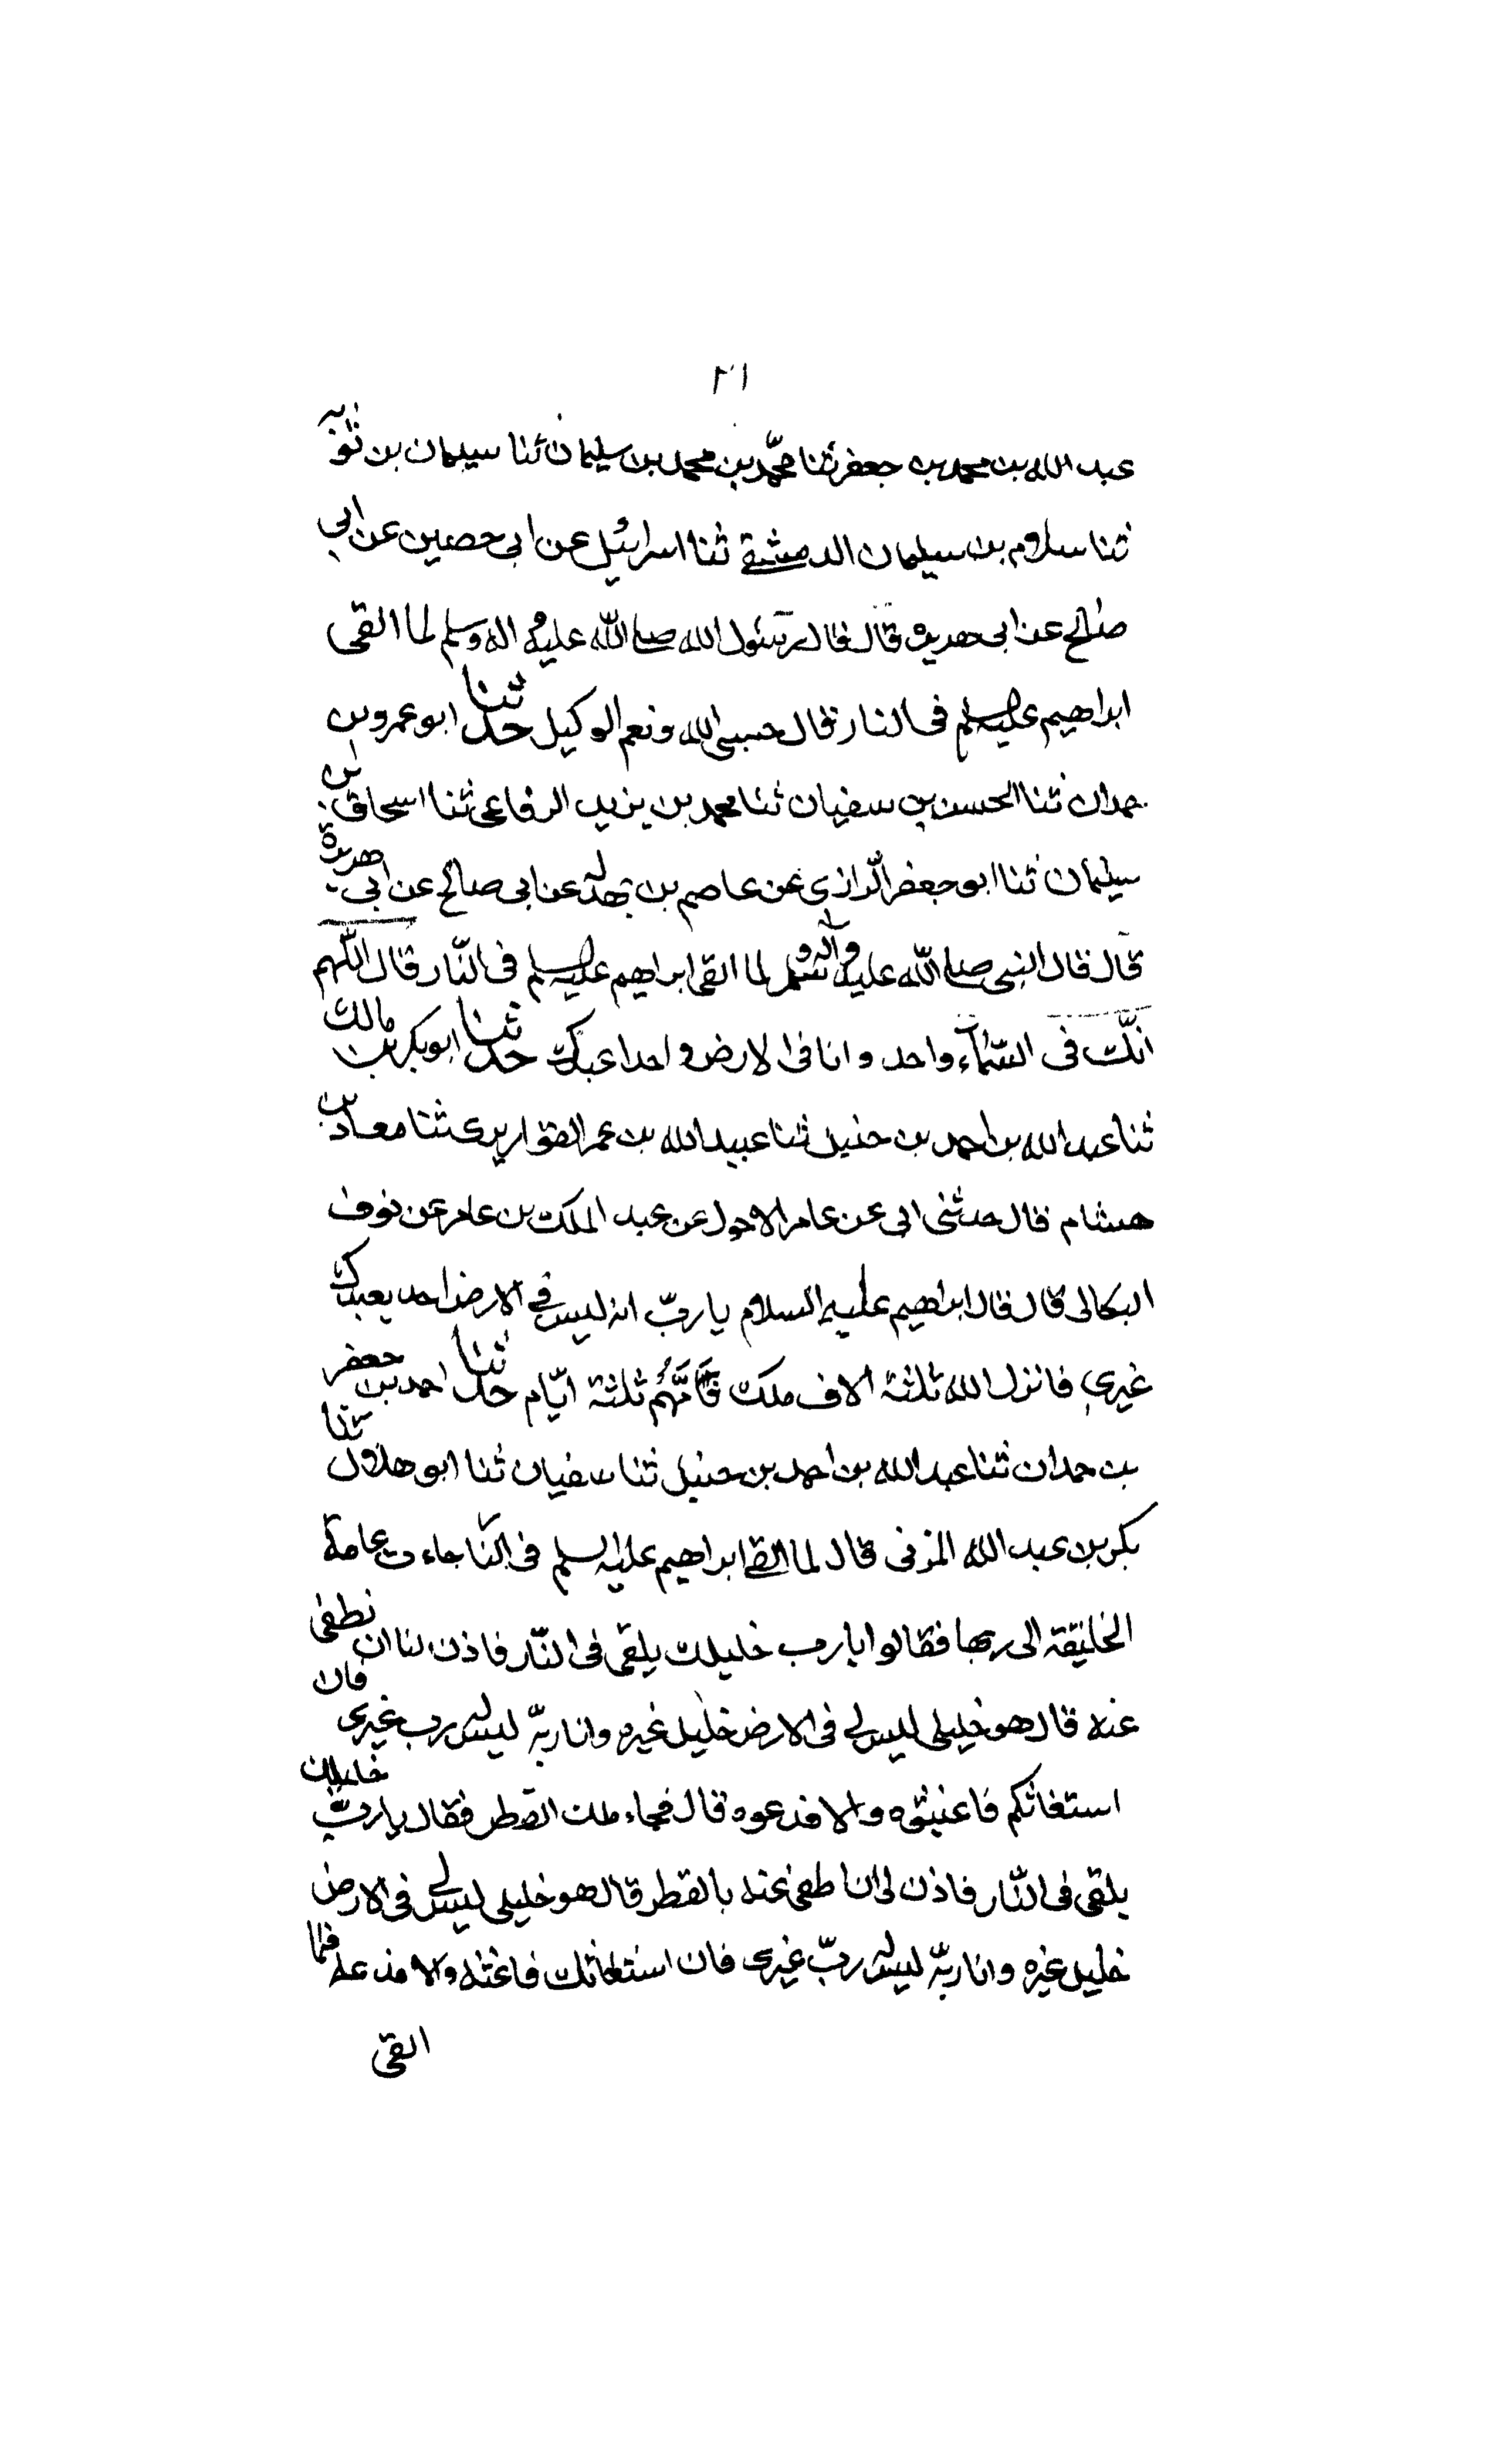 ٢١
عبد الله بن محمد بن جعفر ثنا محمّد بن محمد بن سليمان ثنا سليمان بن توبه
ثنا سلام بن سليمان الدمشقي ثنا اسرائيل عن ابى حصين عن ابي
صالح عن ابى هريره قال قال رسول الله صلى الله عليه و اله وسلم لما القى
ابراهيم عليه السلم فى النار قال حسبى الله ونعم الوكيل حدثنا ابو عمرو بن
حمدان ثنا الحسن بن سفيان ثنا محمد بن يزيد الرفاعى ثنا اسحاق بن
سليمان ثنا ابو جعفر الرازى عن عاصم بن بهدله عن ابى صالح عن ابى هريرة
قال قال النبى صلى الله عليه وآله وسلم لما القى ابراهيم عليه السلم فى النّار قال اللّهم
انّك فى السّمآء واحد وانا فى الارض واحد اعبدك حدثنا ابو بكر بن مالك
ثنا عبد الله بن احمد بن حنبل ثنا عبيد الله بن عمر القواريرى ثنا معاذ بن
هشام قال حدثنى ابى عن عامر الاحول عن عبد الملك بن عامر عن نوف
البكالى قال قال ابراهيم عليه السلام يا ربّ انه ليس فى الارض احد يعبدك
غيرى فانزل الله ثلثة الاف ملك فَأَمَّهُم ثلثة ايّام حدثنا احمد بن جعفر
بن حمدان ثنا عبد الله بن احمد بن حنبل ثنا سفيان ثنا ابو هلال ثنا
بكر بن عبد الله المزنى قال لما القى ابراهيم عليه السلم فى النّار جاءت عامة
الخليقة الى ربها فقالوا يا رب خليلك يلقى فى النّار فاذن لنا ان نطفى
عنه قال هو خليلى ليس لى فى الارض خليل غيره وانا ربّه ليس له رب غيرى فان
استغاثكم فاغيثوه والا فدعوه قال فجاء ملك القطر فقال يا ربّ خليلك
يلقى فى النّار فاذن لى ان اطفى عنه بالقطر قال هو خليلى ليس لى فى الارض
خليل غيره وانا ربّه ليس له ربّ غيرى فان استغاثك فاغثه والا فدعه فلما
القى